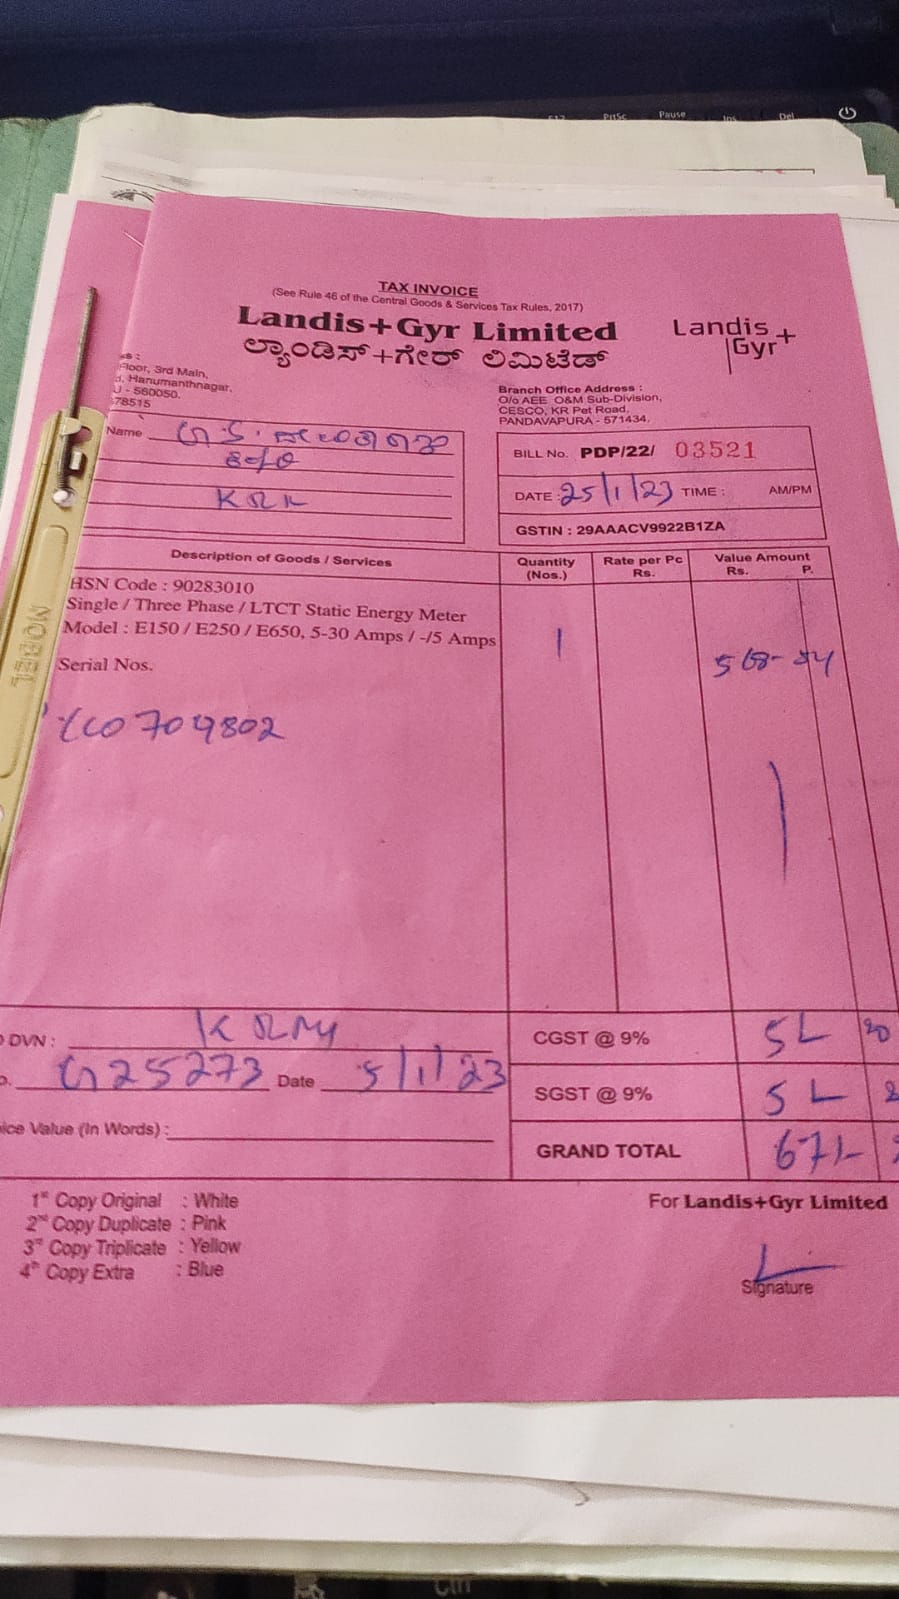 TAX INVOICE
(See Rule 46 of the Central Goods & Services Tax Rules, 2017)
Landis+Gyr Limited
ಲ್ಯಾಂಡಿಸ್+ಗೇರ್ ಲಿಮಿಟೆಡ್
Landis+
Gyr
Floor, 3rd Main,
Hanumanthnagar,
- 560050.
78515
Branch Office Address :
O/o AEE O&M Sub-Division,
CESCO, KR Pet Road,
PANDAVAPURA - 571434.
Name
BILL No. PDP/22/ 03521
DATE : 25/1/23 TIME : AM/PM
GSTIN : 29AAACV9922B1ZA
Description of Goods / Services
Quantity (Nos.)
Rate per Pc Rs.
Value Amount Rs. P.
HSN Code : 90283010
Single / Three Phase / LTCT Static Energy Meter
Model : E150 / E250 / E650, 5-30 Amps / -/5 Amps
1
Serial Nos.
DVN :
CGST @ 9%
G25273 Date 5/1/23
SGST @ 9%
Value (In Words) :
GRAND TOTAL 671-
1st Copy Original : White
2nd Copy Duplicate : Pink
3rd Copy Triplicate : Yellow
4th Copy Extra : Blue
For Landis+Gyr Limited
Signature
NOBEL
PrtSc Pause Ins Del